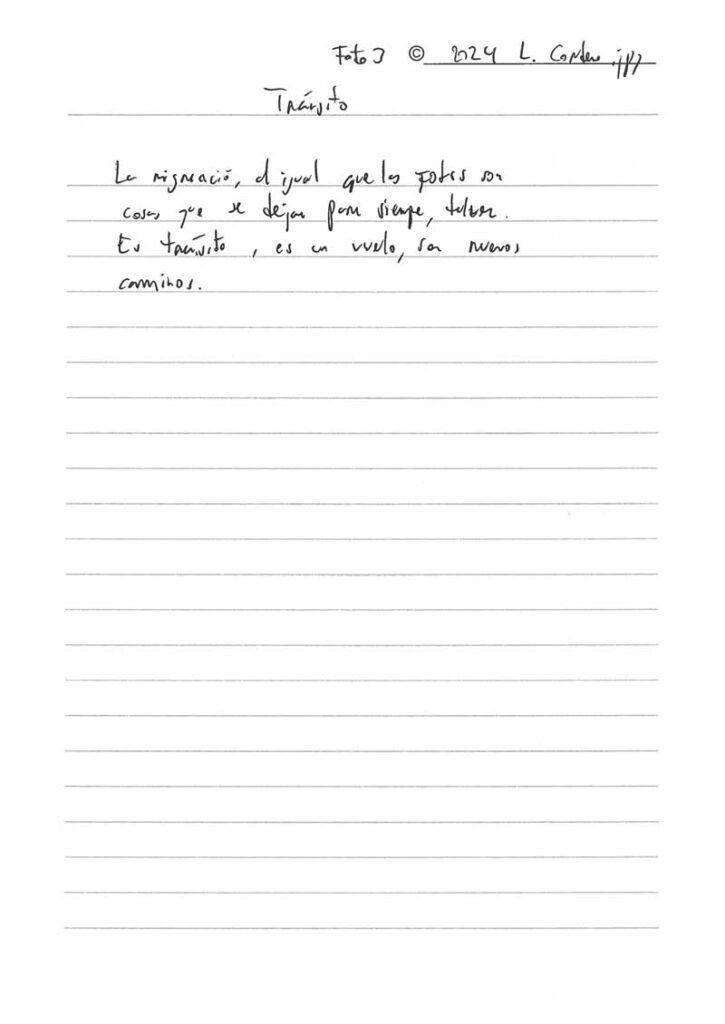 Foto 3 © 2024 L. Cordero.jpg
Tránsito
La migració, al igual que las fotos son
cosas que se dejan para siempre, talvez.
Es tránsito, es un vuelo, son nuevos
caminos.